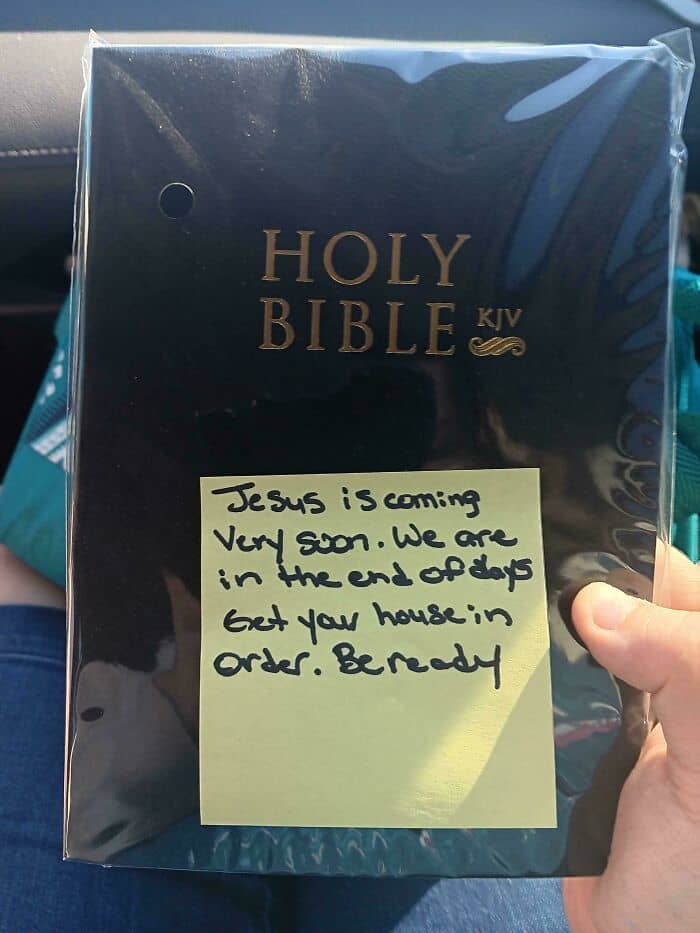 HOLY
BIBLE KJV
Jesus is coming
Very soon. We are
in the end of days
Get your house in
order. Be ready